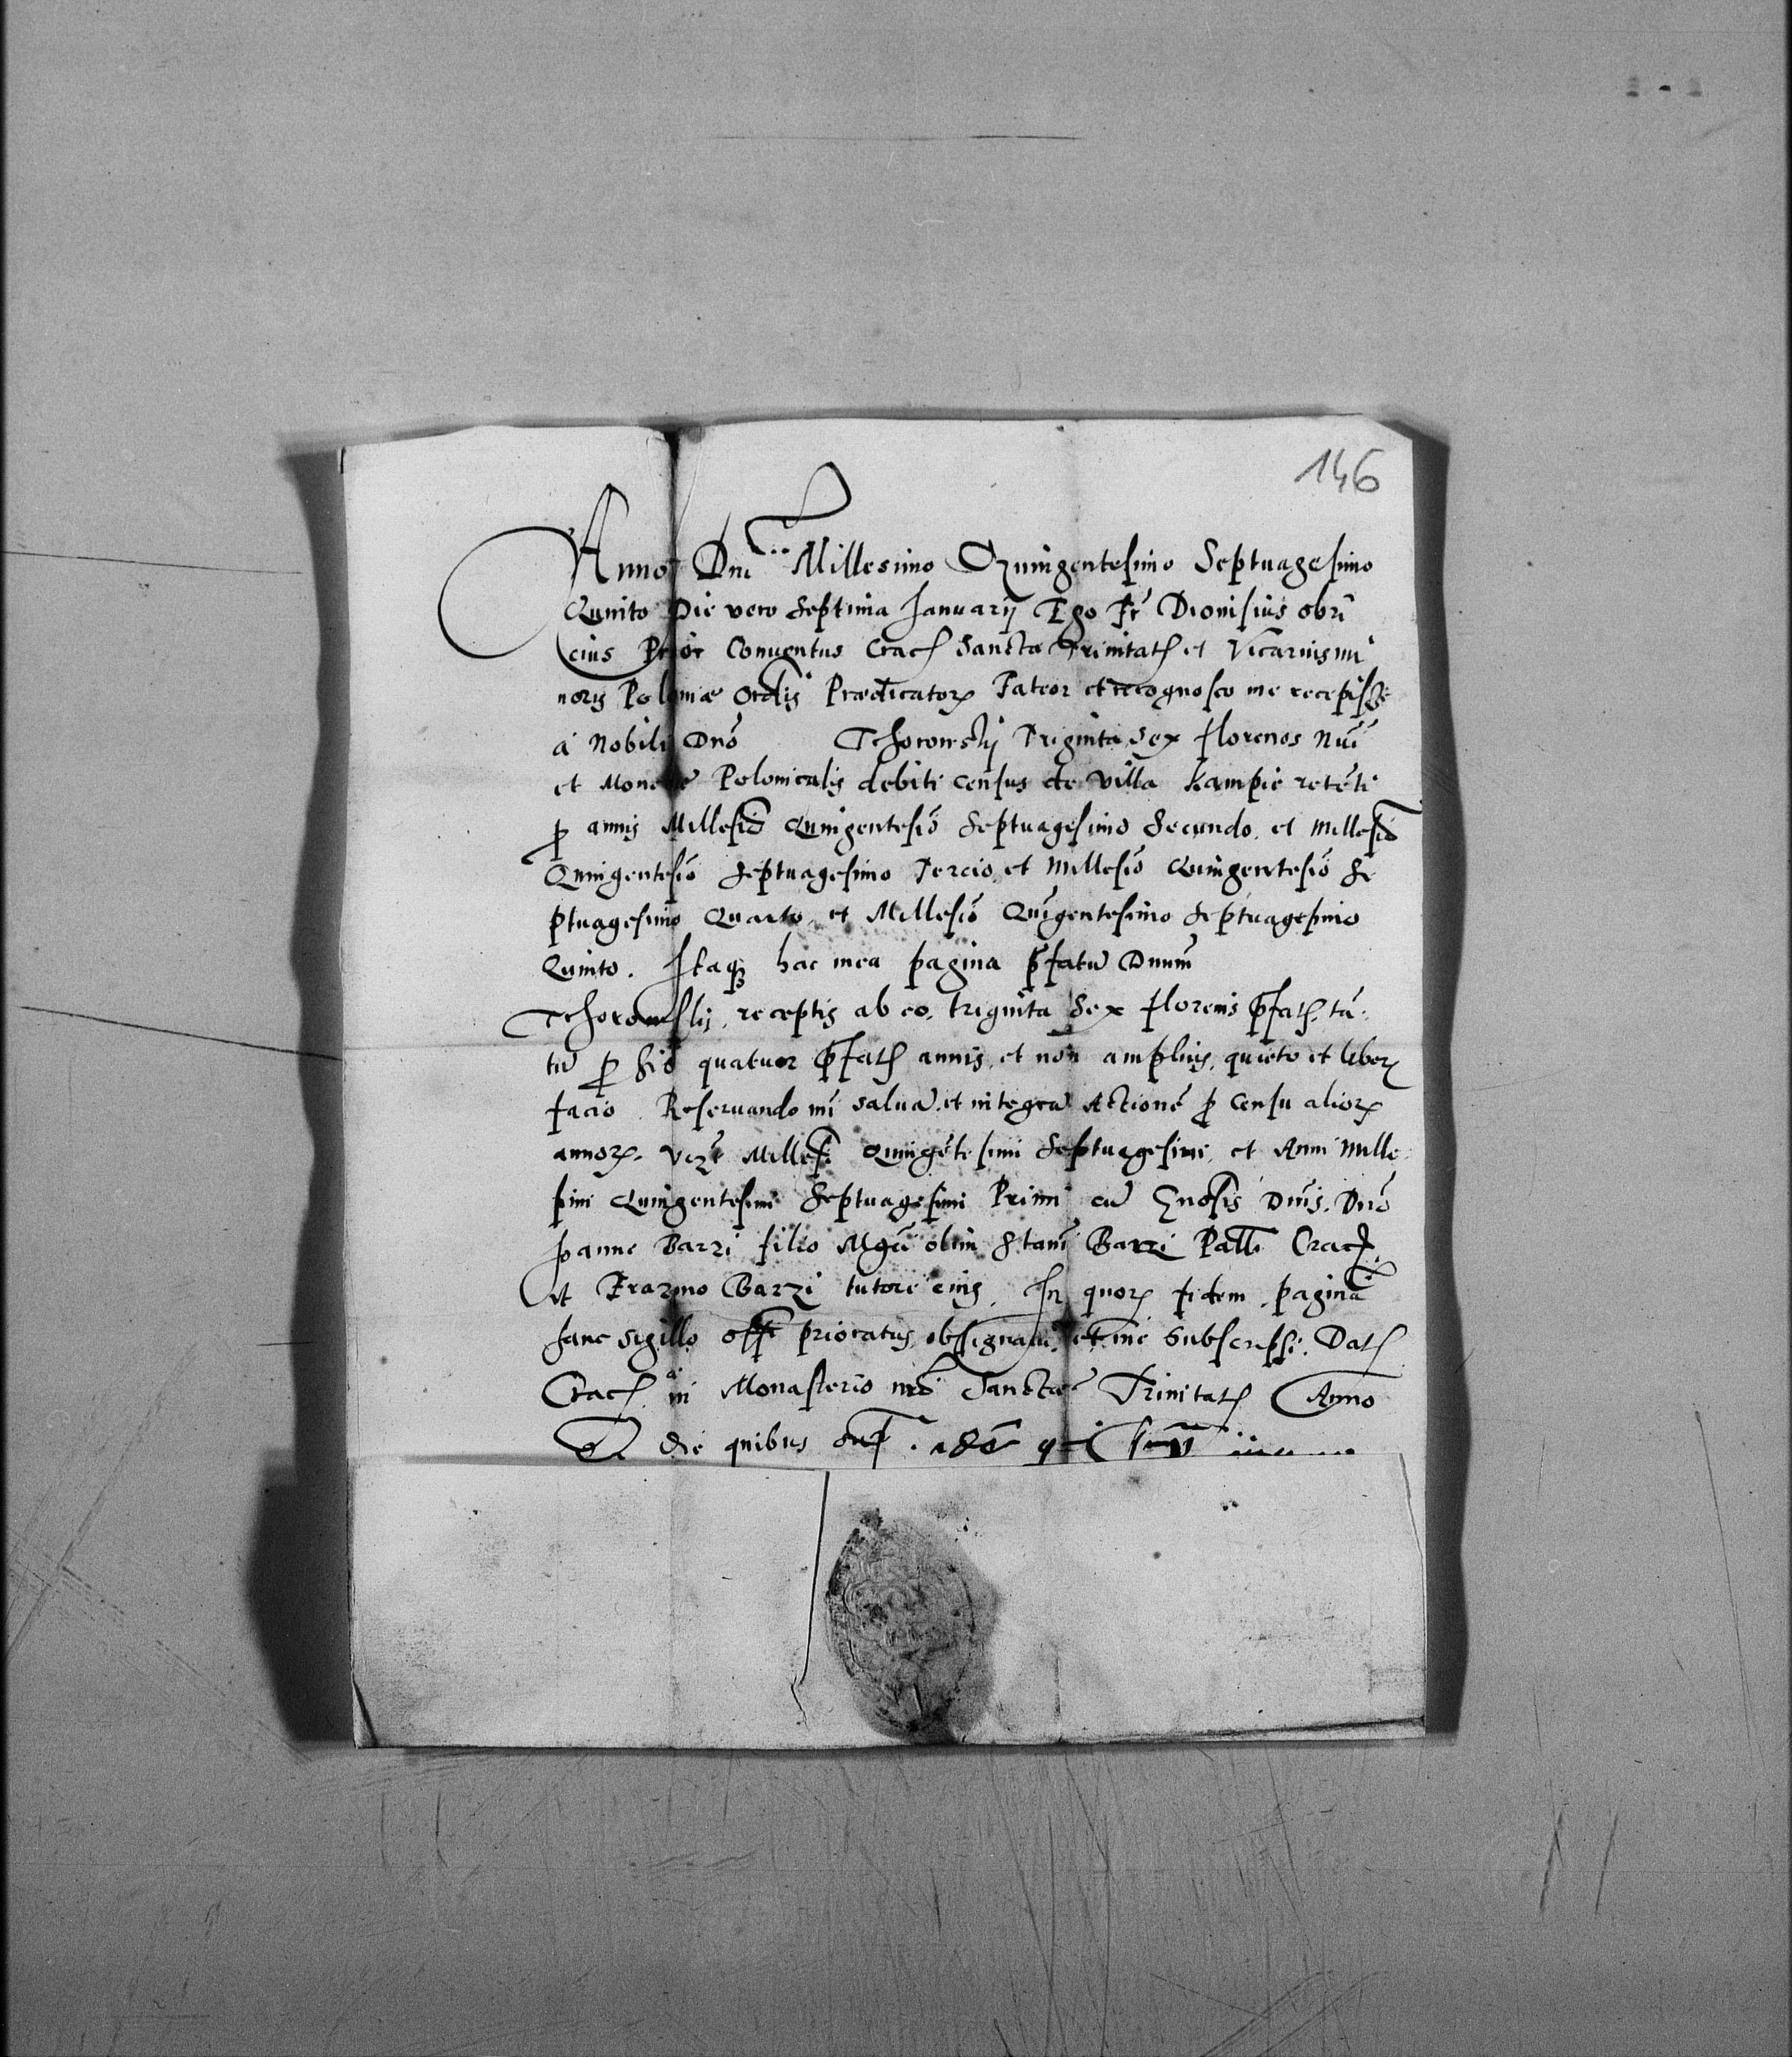 146
Anno Dni Millesimo Quingentesimo Septuagesimo
Quinto Die vero Septima Januarij Ego Fr̃ Dionisius obri
cius Prior Conventus Crac̃ Sanctæ Trinitat̃ et Vicarius mi
noris Poloniæ Ordĩs Prædicator̃ Fateor et recognosco me recepisse
à Nobili Dnõ Tchorowskij Triginta Sex florenos Nũi
et Monetæ Polonicalis debiti census de villa Kampie retẽti
p̱ annis Millesiõ Quingentesiõ Septuagesimo Secundo et Millesiõ
Quingentesiõ Septuagesimo Tercio et Millesiõ Quingentesiõ Se
ptuagesimo Quarto et Millesiõ Quĩgentesimo Septuagesimo
Quinto. Itaqꝫ hac mea pagina p̃fatũ Dnum̃
Tchorowskij receptis ab eo triginta Sex florenis p̃fat̃ tã
tũ p̱ hiis quatuor p̃fat̃ annis et non amplius quieto et liber̃
facio. Reservando mĩ salvã et integrã Actionẽ p̱ censu alior̃
annor̃. Vizt̃ Millesĩ Quingẽtesimi Septuagesimi et Anni Mille
simi Quingentesimi Septuagesimi Primi cũ Gnosis Dnĩs Dnõ
Joanne Barzi filio Mgcĩ olim Stanĩ Barzi Pallĩ Crac̃
et Erazmo Barzi tutore eius. In quor̃ fidem paginã
hanc sigillo offĩ prioratus obsignavi et me Subscripsi. Dat̃
Crac̃ in Monasterio nr̃o Sanctæ Trinitat̃ Anno
et die quibus